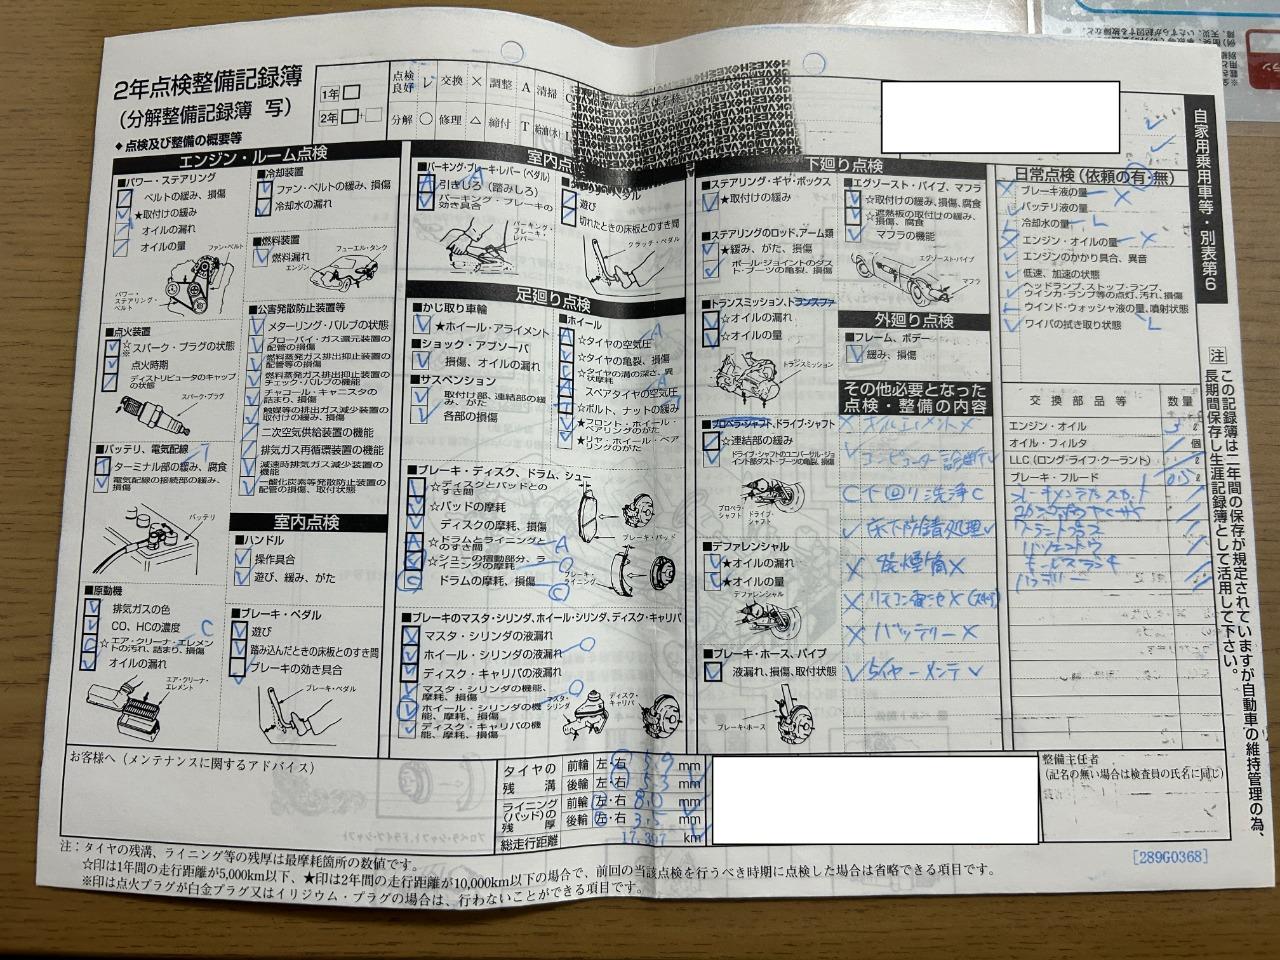 2年点検整備記録簿
(分解整備記録簿 写)
◆点検及び整備の概要等
1年
2年
点検良好 レ 交換 × 調整 A 清掃 C
分解 ○ 修理 △ 締付 T 給油(水) L
自家用乗用車等・別表第6
エンジン・ルーム点検
■パワー・ステアリング
ベルトの緩み、損傷
★取付けの緩み
オイルの漏れ
オイルの量
ファン・ベルト
パワー・ステアリング・ベルト
■点火装置
☆※スパーク・プラグの状態
点火時期
ディストリビュータのキャップの状態
スパーク・プラグ
■バッテリ、電気配線
ターミナル部の緩み、腐食
電気配線の接続部の緩み、損傷
バッテリ
■原動機
排気ガスの色
CO、HCの濃度
☆エア・クリーナ・エレメントの汚れ、詰まり、損傷 C
オイルの漏れ
エア・クリーナ・エレメント
■冷却装置
ファン・ベルトの緩み、損傷
冷却水の漏れ
■燃料装置
燃料漏れ
エンジン
フューエル・タンク
■公害発散防止装置等
メターリング・バルブの状態
ブローバイ・ガス還元装置の配管の損傷
燃料蒸発ガス排出抑止装置の配管等の損傷
燃料蒸発ガス排出抑止装置のチェック・バルブの機能
チャコール・キャニスタの詰まり、損傷
触媒等の排出ガス減少装置の取付けの緩み、損傷
二次空気供給装置の機能
排気ガス再循環装置の機能
減速時排気ガス減少装置の機能
一酸化炭素等発散防止装置の配管の損傷、取付状態
室内点検
■ハンドル
操作具合
遊び、緩み、がた
■ブレーキ・ペダル
遊び
踏み込んだときの床板とのすき間
ブレーキの効き具合
ブレーキ・ペダル
室内点
■パーキング・ブレーキ・レバー(ペダル)
引きしろ(踏みしろ)
パーキング・ブレーキの効き具合
パーキング・ブレーキ・レバー
ペダル
遊び
切れたときの床板とのすき間
クラッチ・ペダル
足廻り点検
■かじ取り車輪
★ホイール・アライメント
■ショック・アブソーバ
損傷、オイルの漏れ
■サスペンション
取付部、連結部の緩み、がた、損傷
各部の損傷
■ホイール
☆タイヤの空気圧 A
☆タイヤの亀裂、損傷
☆タイヤの溝の深さ、異状摩耗
スペアタイヤの空気圧 A
☆ボルト、ナットの緩み
★フロント・ホイール・ベアリングのがた
★リヤ・ホイール・ベアリングのがた
■ブレーキ・ディスク、ドラム、シュー
☆ディスクとパッドとのすき間
☆パッドの摩耗
ディスクの摩耗、損傷
☆ドラムとライニングとのすき間 A
☆シューの摺動部分、ライニングの摩耗
ドラムの摩耗、損傷 C
ブレーキ・パッド
ブレーキ・ライニング
■ブレーキのマスタ・シリンダ、ホイール・シリンダ、ディスク・キャリパ
マスタ・シリンダの液漏れ
ホイール・シリンダの液漏れ
ディスク・キャリパの液漏れ
マスタ・シリンダの機能、摩耗、損傷
ホイール・シリンダの機能、摩耗、損傷
ディスク・キャリパの機能、摩耗、損傷
マスタ・シリンダ
ディスク・キャリパ
下廻り点検
■ステアリング・ギヤ・ボックス
★取付けの緩み
■ステアリングのロッド、アーム類
★緩み、がた、損傷
ボール・ジョイントのダスト・ブーツの亀裂、損傷
■トランスミッション、トランスファ
☆オイルの漏れ
☆オイルの量
トランスミッション
■プロペラ・シャフト、ドライブ・シャフト
☆連結部の緩み
ドライブ・シャフトのユニバーサル・ジョイント部ダスト・ブーツの亀裂、損傷
プロペラ・シャフト
ドライブ・シャフト
■デファレンシャル
★オイルの漏れ
★オイルの量
デファレンシャル
■ブレーキ・ホース、パイプ
液漏れ、損傷、取付状態
ブレーキ・ホース
■エグゾースト・パイプ、マフラ
☆取付けの緩み、損傷、腐食
☆遮熱板の取付けの緩み、損傷、腐食
マフラの機能
エグゾースト・パイプ
マフラ
外廻り点検
■フレーム、ボデー
緩み、損傷
その他必要となった点検・整備の内容
× オイルエレメント ×
レ コンピューター診断 レ
C 下回り洗浄 C
レ 床下防錆処理 レ
× 発煙筒 ×
× リモコン電池 ×
× バッテリー ×
レ タイヤーメンテ レ
日常点検(依頼の有・無)
ブレーキ液の量 ×
バッテリ液の量
冷却水の量 L
エンジン・オイルの量 ×
エンジンのかかり具合、異音
低速、加速の状態
ヘッドランプ、ストップ・ランプ、ウインカ・ランプ等の点灯、汚れ、損傷
ウインド・ウォッシャ液の量、噴射状態 L
ワイパの拭き取り状態
交換部品等 数量
エンジン・オイル 3 ℓ
オイル・フィルタ 1 個
LLC(ロング・ライフ・クーラント) ℓ
ブレーキ・フルード 0.5 ℓ
バッテリー
注 この記録簿は二年間の保存が規定されていますが自動車の維持管理の為、長期間保存し生涯記録簿として活用して下さい。
お客様へ(メンテナンスに関するアドバイス)
タイヤの残溝 前輪 左・右 5.9 mm
後輪 左・右 5.3 mm
ライニング(パッド)の残厚 前輪 左・右 8.0 mm
後輪 左・右 3.5 mm
総走行距離 17,397 km
整備主任者
(記名の無い場合は検査員の氏名に同じ)
[289G0368]
注:タイヤの残溝、ライニング等の残厚は最摩耗箇所の数値です。
☆印は1年間の走行距離が5,000km以下、★印は2年間の走行距離が10,000km以下の場合で、前回の当該点検を行うべき時期に点検した場合は省略できる項目です。
※印は点火プラグが白金プラグ又はイリジウム・プラグの場合は、行わないことができる項目です。